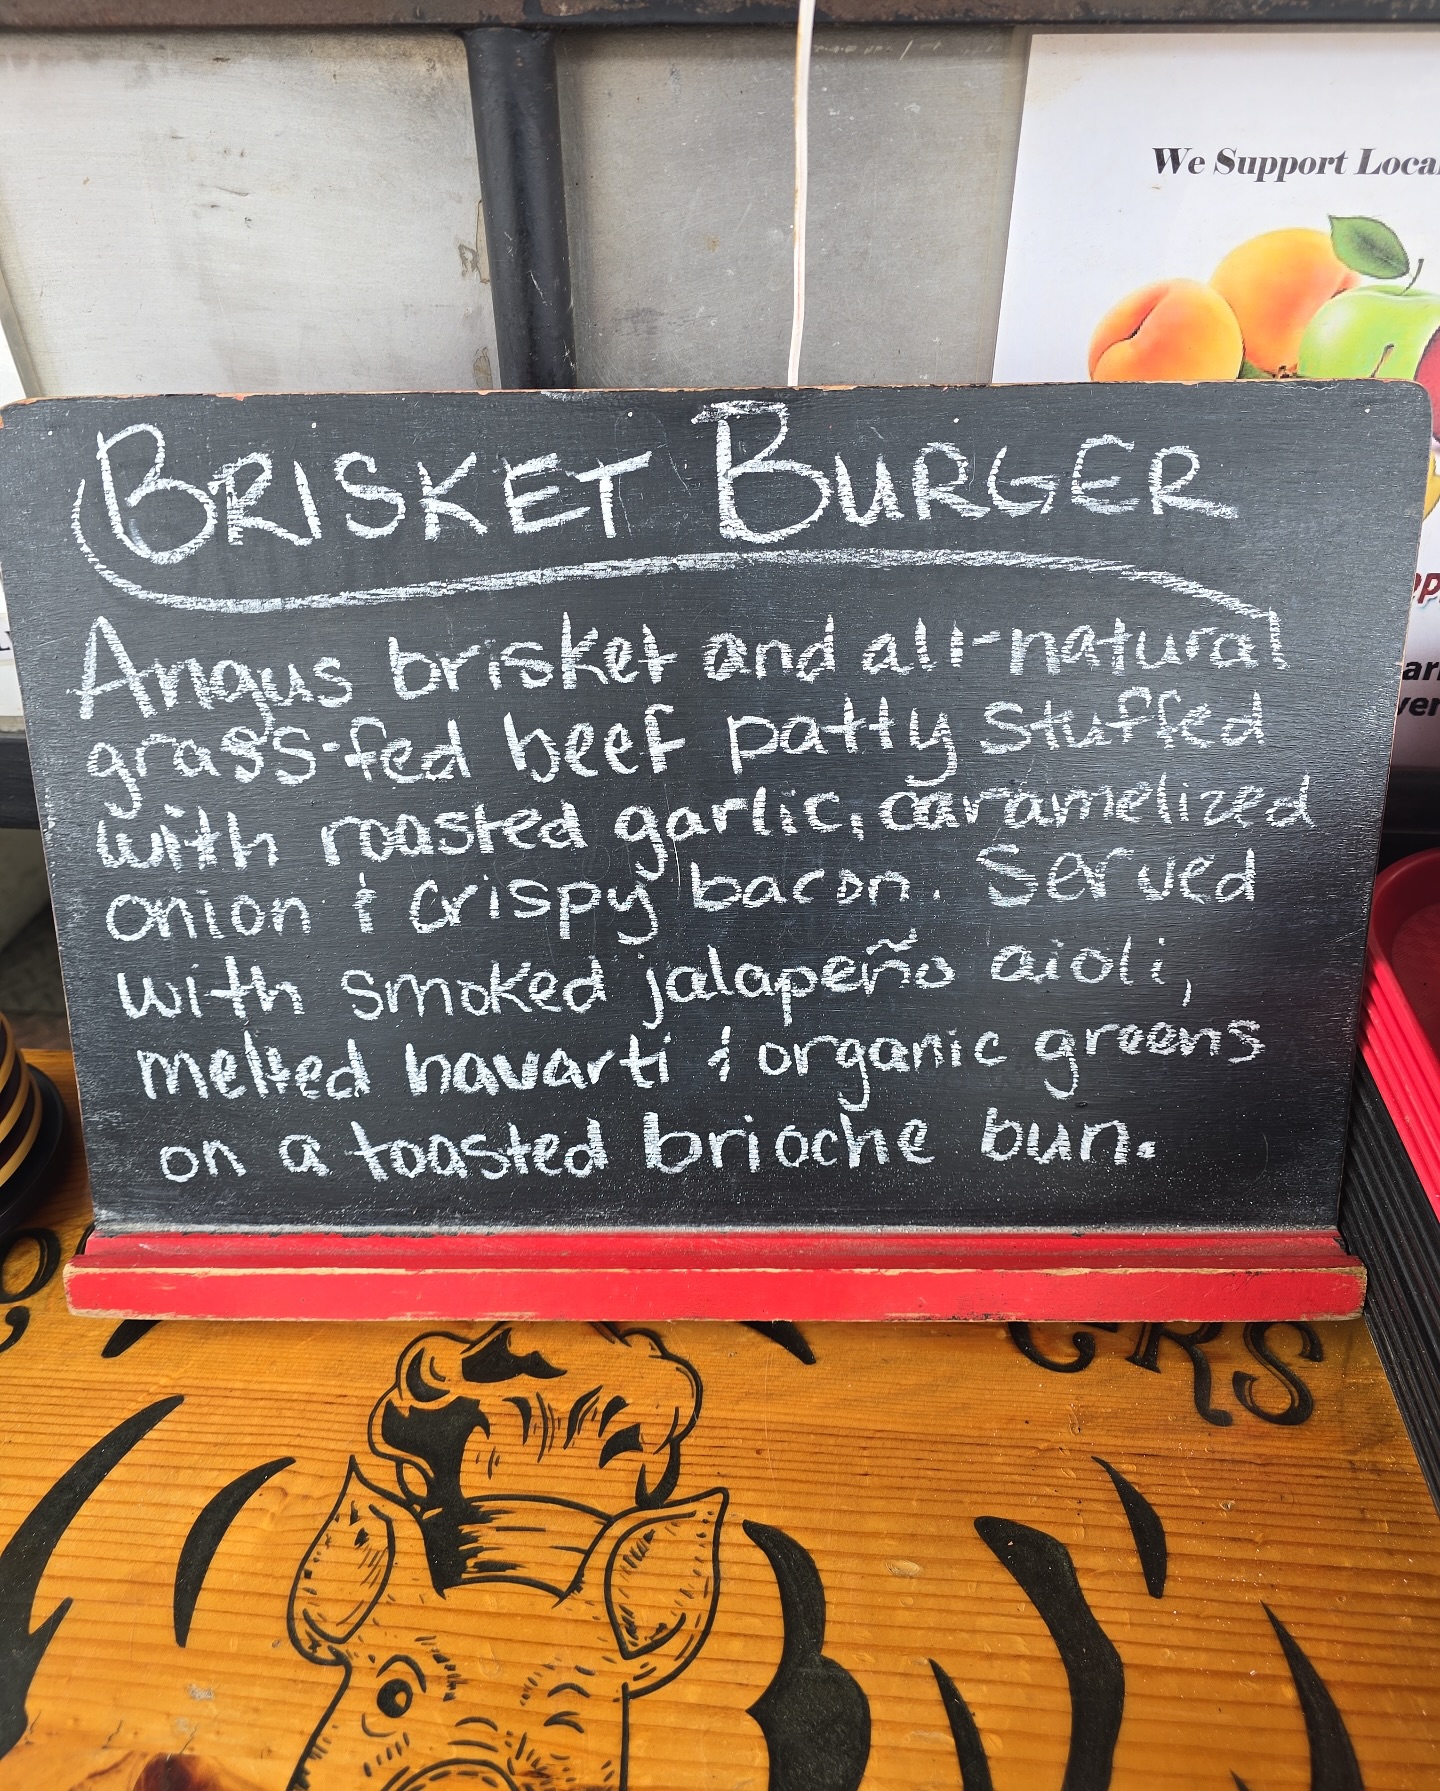 We Support Local
BRISKET BURGER
Angus brisket and all-natural
grass-fed beef patty stuffed
with roasted garlic, caramelized
onion & crispy bacon. Served
with smoked jalapeño aioli,
melted havarti & organic greens
on a toasted brioche bun.